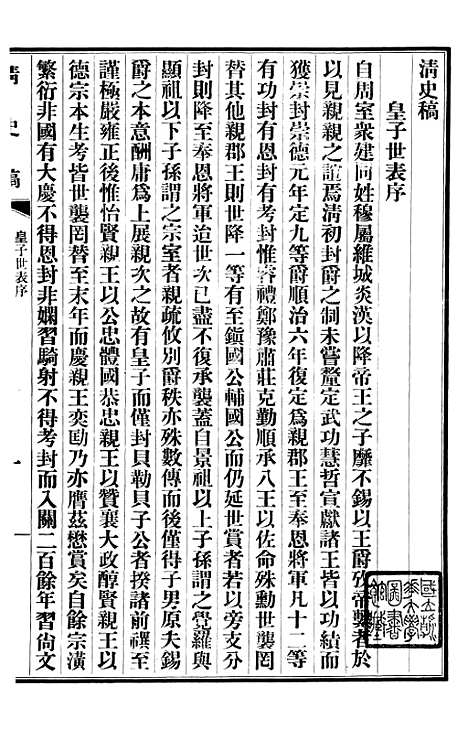 清史稿
皇子世表序
自周室衆建同姓穆屬維城炎漢以降帝王之子靡不錫以王爵攷帝繫者於
以見親親之誼焉清初封爵之制未嘗釐定武功慧哲宣獻諸王皆以功績而
獲崇封崇德元年定九等爵順治六年復定爲親郡王至奉恩將軍凡十二等
有功封有恩封有考封惟睿禮鄭豫肅莊克勤順承八王以佐命殊勳世襲罔
替其他親郡王則世降一等有至鎭國公輔國公而仍延世賞者若以旁支分
封則降至奉恩將軍迨世次已盡不復承襲蓋自景祖以上子孫謂之覺羅與
顯祖以下子孫謂之宗室者親疏攸別爵秩亦殊數傳而後僅得子男原夫錫
爵之本意酬庸爲上展親次之故有皇子而僅封貝勒貝子公者揆諸前禩至
謹極嚴雍正之後惟怡賢親王以公忠體國恭忠親王以贊襄大政醇賢親王以
德宗本生考皆世襲罔替至末年而慶親王奕劻乃亦膺茲懋賞矣自餘宗潢
繁衍非國有大慶不得恩封非嫻習騎射不得考封而入關二百餘年習尙文
清史稿
皇子世表序
一